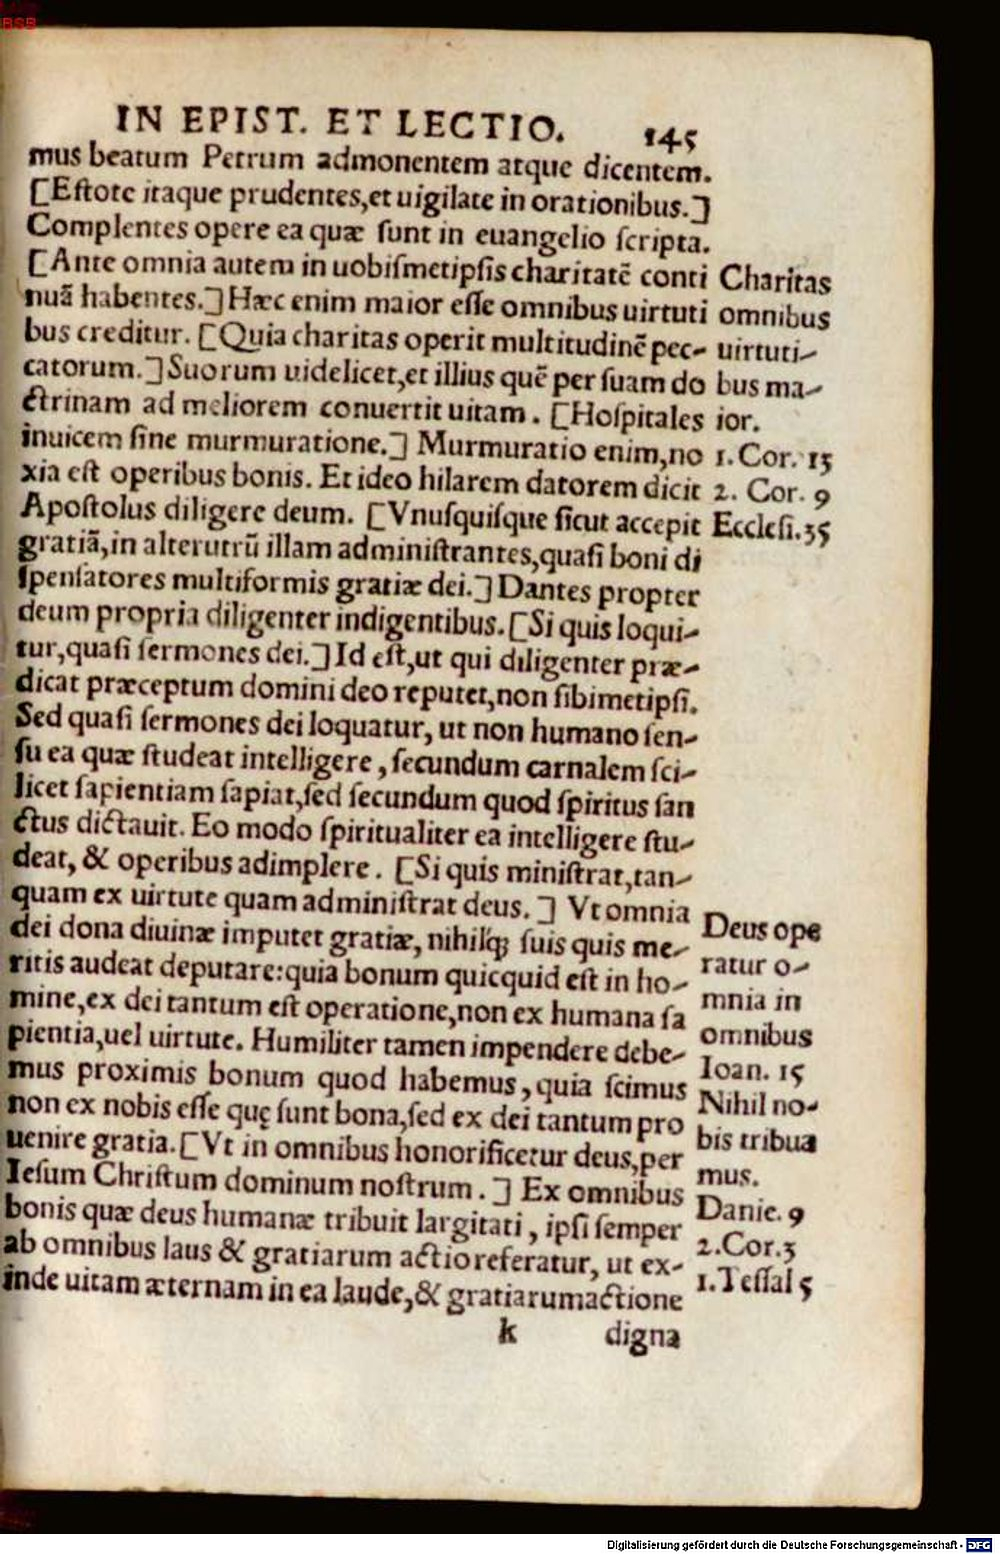 BSB
IN EPIST. ET LECTIO. 145
mus beatum Petrum admonentem atque dicentem.
[Eſtote itaque prudentes,et uigilate in orationibus.]
Complentes opere ea quæ ſunt in euangelio ſcripta.
[Ante omnia autem in uobiſmetipſis charitatē conti
nuā habentes.] Hæc enim maior eſſe omnibus uirtuti
bus creditur. [Quia charitas operit multitudinē pec-
catorum.] Suorum uidelicet,et illius quē per ſuam do
ctrinam ad meliorem conuertit uitam. [Hoſpitales
inuicem ſine murmuratione.] Murmuratio enim,no
xia eſt operibus bonis. Et ideo hilarem datorem dicit
Apoſtolus diligere deum. [Vnuſquiſque ſicut accepit
gratiā,in alterutrū illam adminiſtrantes,quaſi boni di
ſpenſatores multiformis gratiæ dei.] Dantes propter
deum propria diligenter indigentibus. [Si quis loqui-
tur,quaſi ſermones dei.] Id eſt,ut qui diligenter præ-
dicat præceptum domini deo reputet,non ſibimetipſi.
Sed quaſi ſermones dei loquatur, ut non humano ſen-
ſu ea quæ ſtudeat intelligere, ſecundum carnalem ſci-
licet ſapientiam ſapiat,ſed ſecundum quod ſpiritus ſan
ctus dictauit. Eo modo ſpiritualiter ea intelligere ſtu-
deat, & operibus adimplere. [Si quis miniſtrat,tan-
quam ex uirtute quam adminiſtrat deus.] Vt omnia
dei dona diuinæ imputet gratiæ, nihilq́; ſuis quis me-
ritis audeat deputare:quia bonum quicquid eſt in ho-
mine,ex dei tantum eſt operatione,non ex humana ſa
pientia,uel uirtute. Humiliter tamen impendere debe-
mus proximis bonum quod habemus, quia ſcimus
non ex nobis eſſe quę ſunt bona,ſed ex dei tantum pro
uenire gratia. [Vt in omnibus honorificetur deus,per
Ieſum Chriſtum dominum noſtrum.] Ex omnibus
bonis quæ deus humanæ tribuit largitati, ipſi ſemper
ab omnibus laus & gratiarum actio referatur, ut ex-
inde uitam æternam in ea laude,& gratiarumactione
k digna
Charitas
omnibus
uirtuti-
bus ma-
ior.
1. Cor. 13
2. Cor. 9
Eccleſi.35
Deus ope
ratur o-
mnia in
omnibus
Ioan. 15
Nihil no-
bis tribua
mus.
Danie. 9
2.Cor.3
1.Teſſal 5
Digitalisierung gefördert durch die Deutsche Forschungsgemeinschaft - DFG